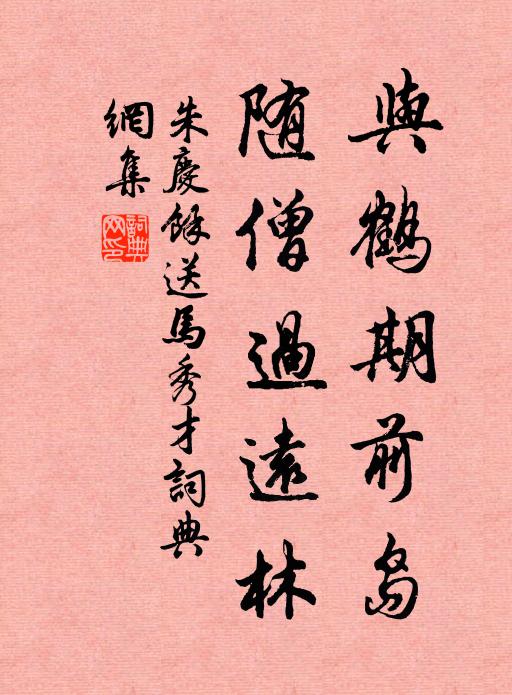 與鶴期前島
随僧過遠林
朱慶餘送馬秀才詞典
網集
詞典網印